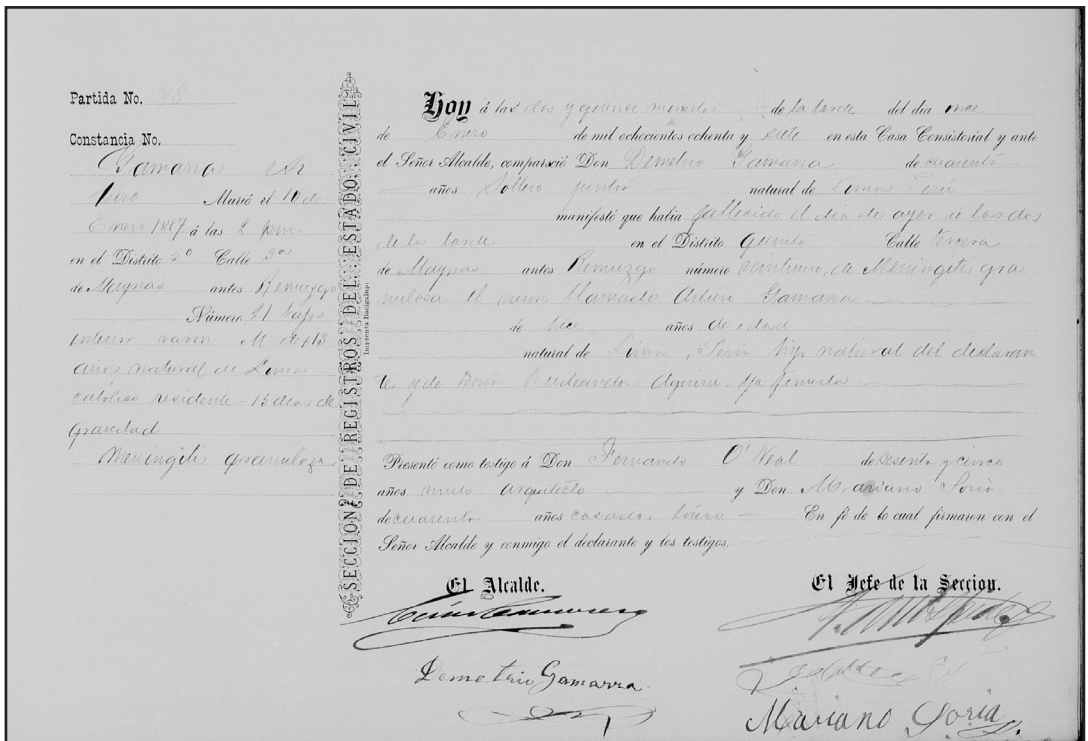 Partida No. 48
Constancia No.
Gamarra Ar
turo Murió el 10 de
Enero 1887 á las 2 pm
en el Distrito 5º Calle 3ª
de Maynas antes Remuzgo
Número 21
varon M de 13
años natural de Lima
católico residente - 15 dias de
gravedad
Meningitis granuloza
SECCION DE REGISTROS DEL ESTADO CIVIL
Imprenta
Hoy á las dos y quince minutos de la tarde del dia once
de Enero de mil ochocientos ochenta y siete en esta Casa Consistorial y ante
el Señor Alcalde, compareció Don Demetrio Gamarra de cuarenta
años Soltero pintor natural de Lima Perú
manifestó que habia fallecido el dia de ayer á las dos
de la tarde en el Distrito Quinto Calle tercera
de Maynas antes Remuzgo número veintiuno, de Meningitis gra
nulosa el varon llamado Arturo Gamarra
de trece años de edad
natural de Lima, Perú hijo natural del declaran
te y de Doña Aguirre ya finada
Presentó como testigo á Don Fernando O'Neal de sesenta y cinco
años viudo arquitecto y Don Mariano Soria
de cuarenta años casado. torero En fé de lo cual firmaron con el
Señor Alcalde y conmigo el declarante y los testigos.
El Alcalde.
El Jefe de la Seccion.
Demetrio Gamarra
Mariano Soria